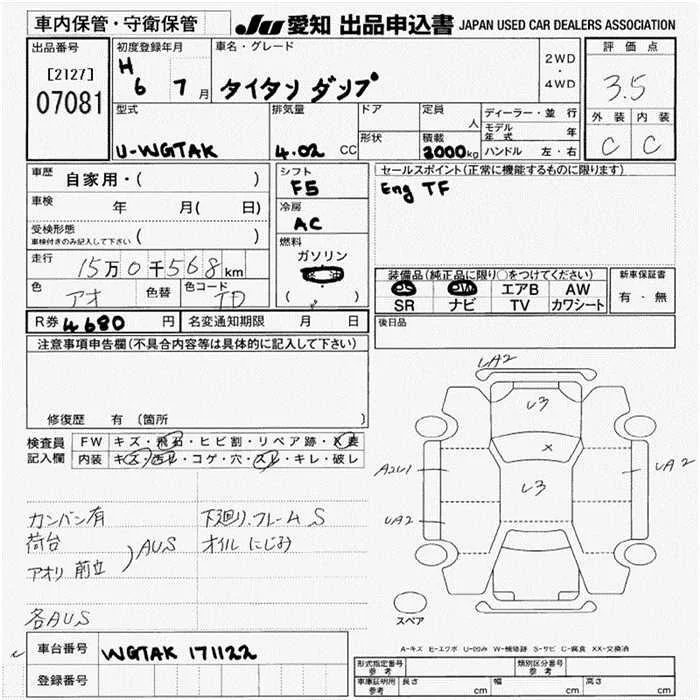 車内保管・守衛保管
JU 愛知 出品申込書 JAPAN USED CAR DEALERS ASSOCIATION
出品番号
[2127]
07081
初度登録年月
H 6 7月
車名・グレード
タイタン ダンプ
2WD
・
4WD
評価点
3.5
外装 内装
C C
型式
U-WGTAK
排気量
4.02 CC
ドア
形状
定員
人
積載
3000kg
ディーラー・並行
モデル年式 年
ハンドル 左・右
車歴 自家用・( )
車検 年 月( 日)
受検形態
車検付きのみ記入して下さい ( )
走行 15万0千568km
色 アオ 色替 色コード TD
シフト
F5
冷房
AC
燃料
ガソリン
( )
セールスポイント(正常に機能するものに限ります)
Eng TF
装備品(純正品に限り○をつけてください)
PS PW エアB AW
SR ナビ TV カワシート
新車保証書
有・無
後日品
R券 4680 円 名変通知期限 月 日
注意事項申告欄(不具合内容等は具体的に記入して下さい)
修復歴 有 〔箇所 〕
検査員記入欄
FW キズ・飛石・ヒビ割・リペア跡・X要
内装 キズ・汚レ・コゲ・穴・スレ・キレ・破レ
カンバン有
荷台
アオリ 前立 ) AUS
各AUS
下廻り.フレーム S
オイル にじみ
UA2
U3
X
U3
A2U1
UA2
UA2
スペア
A-キズ E-エクボ U-凹み W-補修跡 S-サビ C-腐食 XX-交換済
車台番号 WGTAK 171122
登録番号
形式指定番号
参考
類別区分番号
参考
車庫証明用
参考
長さ cm 幅 cm 高さ cm